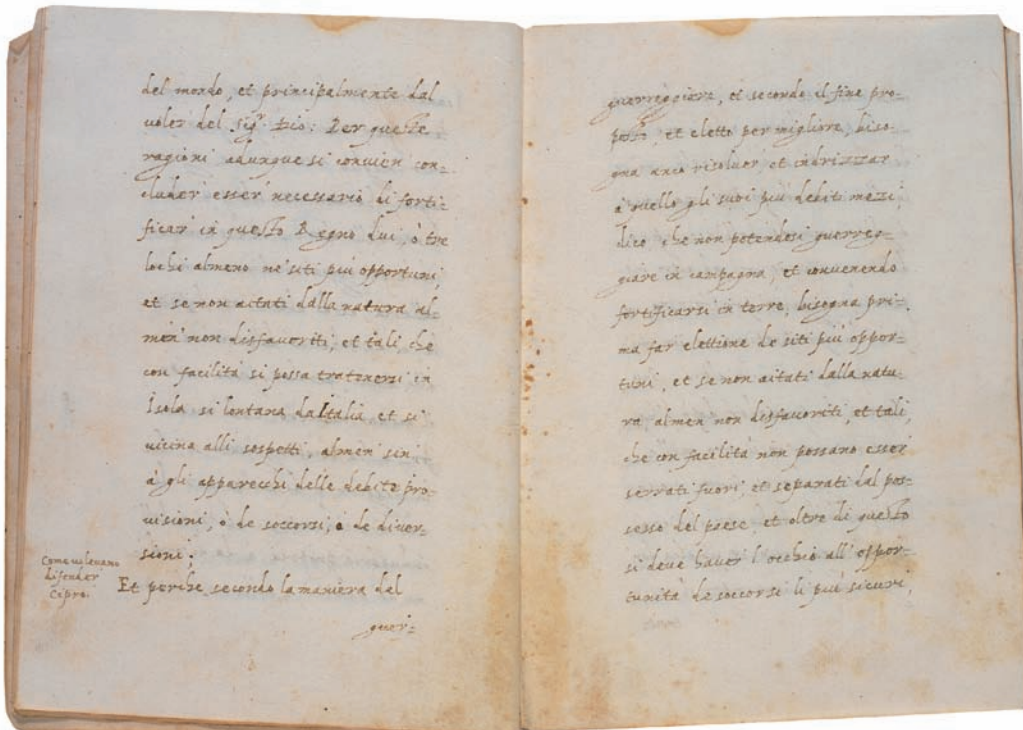 del mondo, et principalmente dal
voler del sig.r Dio: Per queste
ragioni adunque si convien con=
cluder esser necessario di forti=
ficar in questo Regno dui, ò tre
lochi almeno ne' siti più opportuni,
et se non aitati dalla natura al=
men' non disfavoriti, et tali, che
con facilità si possa tratenersi in
Isola si lontana da Italia, et si
vicina alli sospetti, almen sin
à gli apparecchi delle debite pro=
visioni, ò de soccorsi, ò de diver=
sioni;
Come volevano
difender
Cipro.
Et perche, secondo la maniera del
guer=
guerreggiare, et secondo il fine pro=
posto, et eletto per migliore, biso=
gna anco risolver, et indrizzar
à quello gli suoi più debiti mezzi,
dico che non potendosi guerreg=
giare in campagna, et convenendo
fortificarsi in terre, bisogna pri=
ma far elettione de siti più oppor=
tuni, et se non aitati dalla natu=
ra, almen non disfavoriti, et tali,
che con facilità non possano esser
serrati fuori, et separati dal pos=
sesso del paese, et oltre di questo
si deve haver l'occhio all'oppor=
tunità de soccorsi li più sicuri,